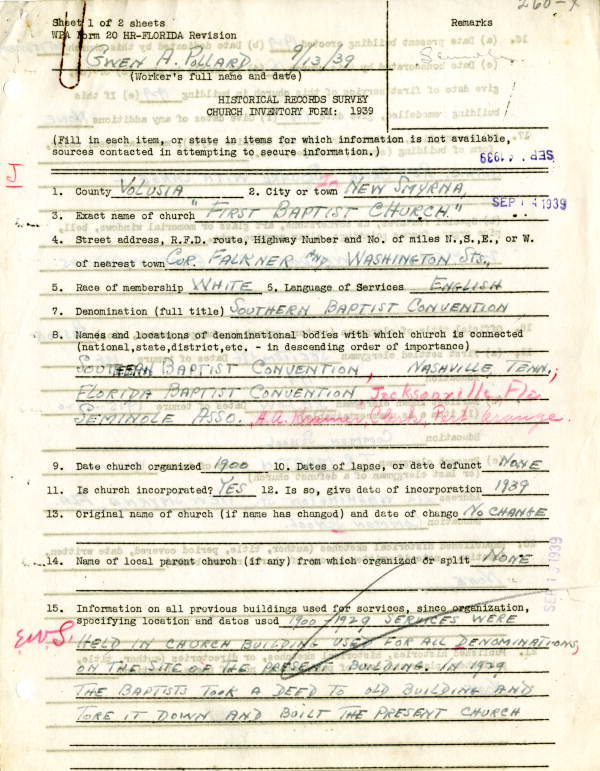 260-X
Sheet 1 of 2 sheets
Remarks
WPA Form 20 HR-FLORIDA Revision
GWEN A. POLLARD 9/13/39
(Worker's full name and date)
HISTORICAL RECORDS SURVEY
CHURCH INVENTORY FORM: 1939
(Fill in each item, or state in items for which information is not available,
sources contacted in attempting to secure information.)
SEP 14 1939
J
1. County VOLUSIA 2. City or town In NEW SMYRNA,
SEP 14 1939
3. Exact name of church "FIRST BAPTIST CHURCH."
4. Street address, R.F.D. route, Highway Number and No. of miles N.,S.,E., or W.
of nearest town COR. FALKNER AND WASHINGTON STS.,
5. Race of membership WHITE 5. Language of Services ENGLISH
7. Denomination (full title) SOUTHERN BAPTIST CONVENTION
8. Names and locations of denominational bodies with which church is connected
(national,state,district,etc. - in descending order of importance)
SOUTHERN BAPTIST CONVENTION, NASHVILLE, TENN.;
FLORIDA BAPTIST CONVENTION Jacksonville, Fla
SEMINOLE ASSO. , A.A. Kramer, Clerk, Port Orange.
9. Date church organized 1900 10. Dates of lapse, or date defunct NONE
11. Is church incorporated? YES 12. Is so, give date of incorporation 1939
13. Original name of church (if name has changed) and date of change NO CHANGE
14. Name of local parent church (if any) from which organized or split NONE
15. Information on all previous buildings used for services, since organization,
specifying location and dates used 1900-1929 SERVICES WERE
HELD IN CHURCH BUILDING USED FOR ALL DENOMINATIONS,
ON THE SITE OF THE PRESENT BUILDING. IN 1929
THE BAPTISTS TOOK A DEED TO OLD BUILDING AND
TORE IT DOWN AND BUILT THE PRESENT CHURCH